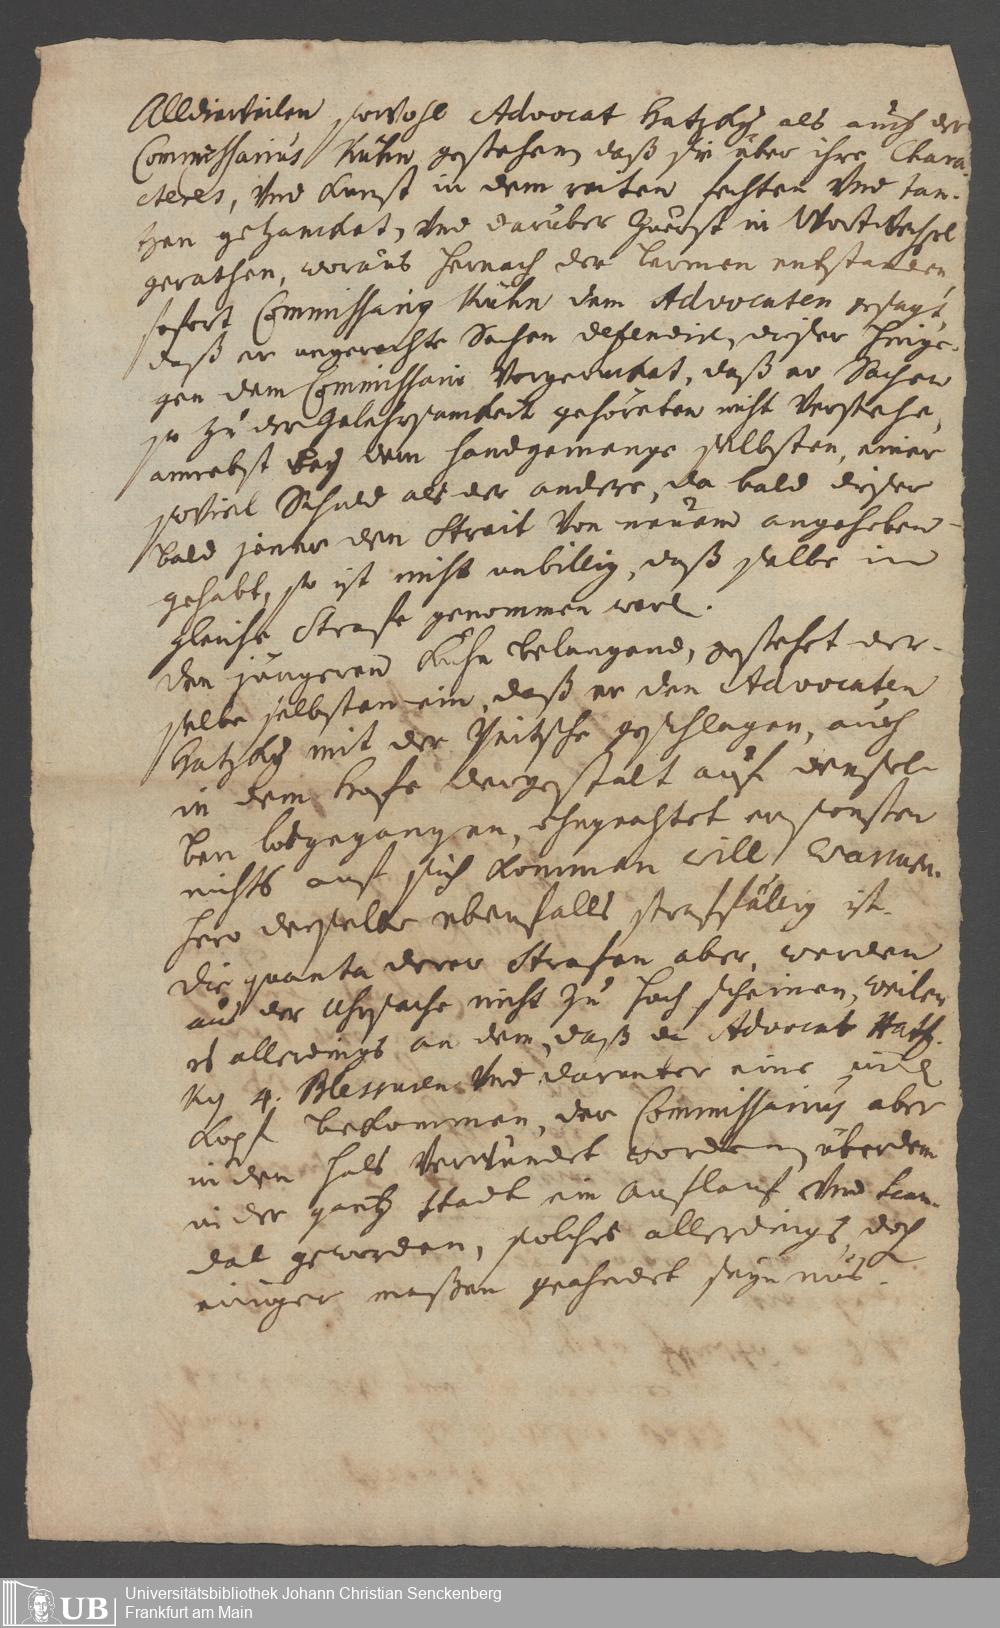 Alldieweilen sowohl Advocat Hatzky als auch der
Commissarius Kühn gestehen, daß sie über ihre Chara-
cteres, Vnd Kunst in dem reiten fechten Vnd tan-
tzen gezancket, Vnd darüber zuerst in Wortwechsel
gerathen, woraus hernach der Lermen entstanden,
sofort Commissarius Kühn dem Advocaten gesagt,
daß er ungerechte Sachen defendire, dieser hinge-
gen dem Commissario Vorgerücket, daß er Sachen
so zu der Gelehrsamkeit gehöreten nicht Verstehe,
annebst bey dem handgemenge selbsten, einer
soviel Schuld als der andere, da bald dieser
bald jener den Streit Von neuem angehoben
gehabt, so ist nicht unbillig, daß selbe in
gleiche Strafe genommen werd.
Den jüngeren Kühn belangend, gestehet der-
selbe selbsten ein, daß er den Advocaten
Hatzky mit der Peitsche geschlagen, auch
in dem Hofe dergestalt auf densel-
ben losgegangen, ohngeachtet er sonsten
nichts auf sich kommen will, wannen-
hero derselbe ebenfalls straffällig ist.
Die quanta derer Strafen aber, werden
aus der Uhrsache nicht zu hoch scheinen, weilen
es allerdings an dem, daß der Advocat Hatz-
ky 4. Blessuren Vnd darunter eine
Kopf bekommen, der Commissarius aber
in den Hals Verwundet worden, überdem
in der gantz Stadt ein Auflauf Vnd Scan-
dal geworden, solches allerdings doch
einiger maßen geahndet seyn mus.
Universitätsbibliothek Johann Christian Senckenberg
Frankfurt am Main
UB